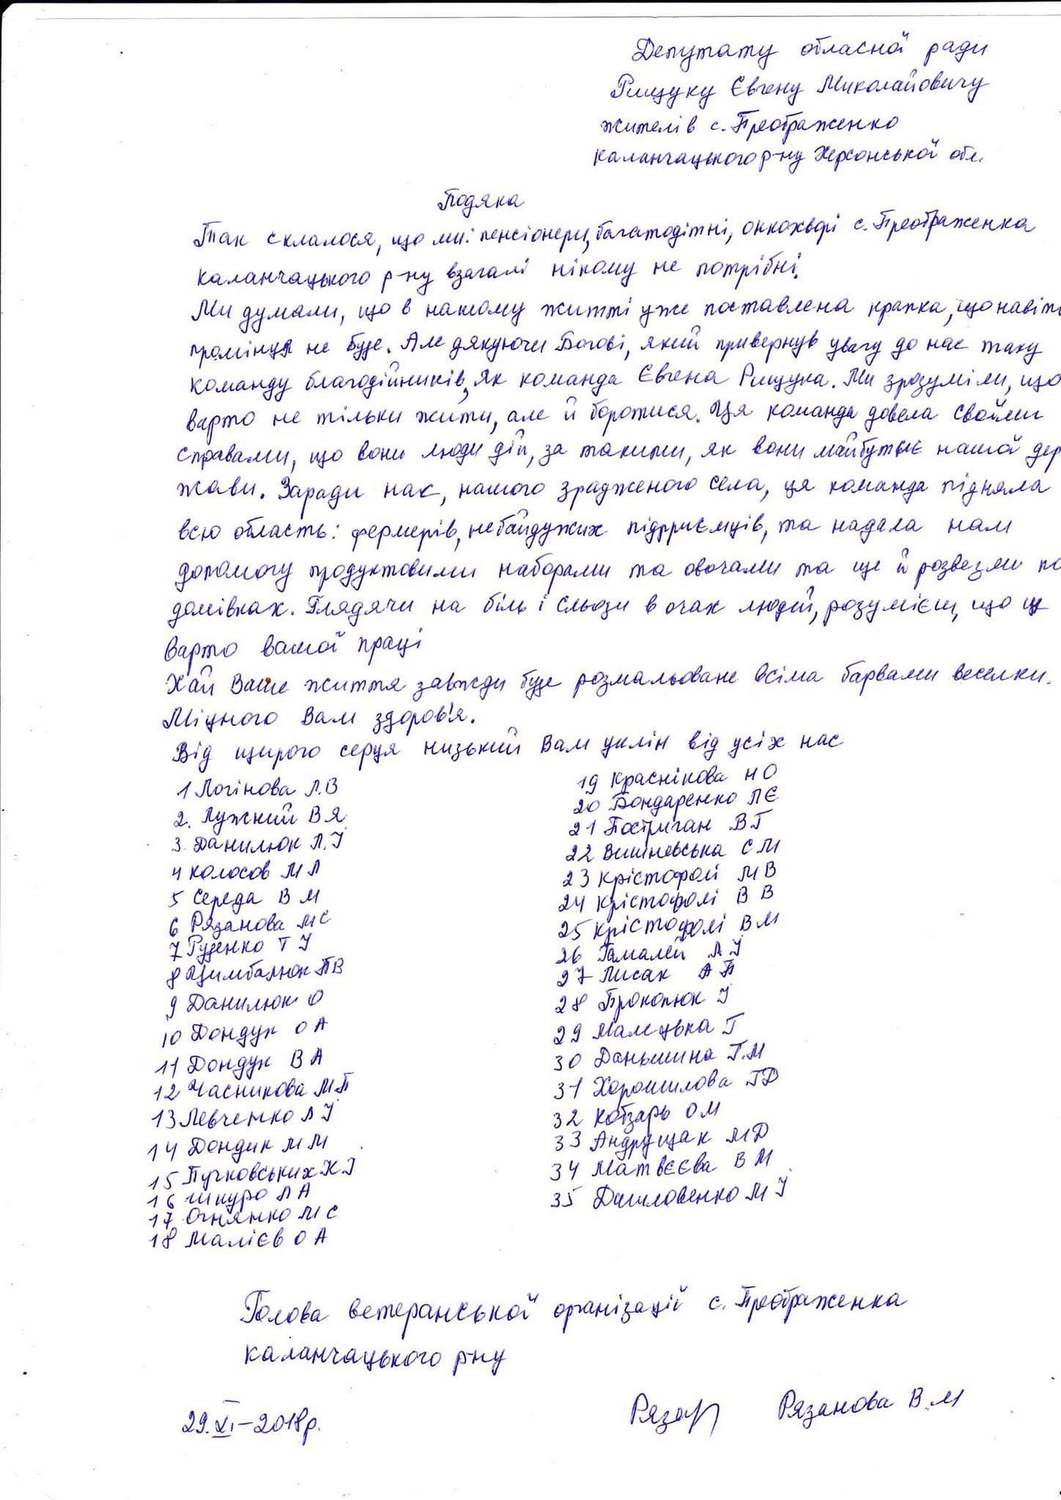 Депутату обласної ради
Рищуку Євгену Миколайовичу
жителів с. Преображенко
Каланчацького р-ну Херсонської обл.
Подяка
Так склалося, що ми: пенсіонери, багатодітні, онкохворі с. Преображенка
Каланчацького р-ну взагалі нікому не потрібні.
Ми думали, що в нашому житті уже поставлена крапка, що навіть
промінця не буде. Але дякуючи Богові, який привернув увагу до нас таку
команду благодійників, як команда Євгена Рищука. Ми зрозуміли, що
варто не тільки жити, але й боротися. Ця команда довела своїми
справами, що вони люди дій, за такими, як вони майбутнє нашої дер
жави. Заради нас, нашого зрадженого села, ця команда підняла
всю область: фермерів, небайдужих підприємців, та надала нам
допомогу продуктовими наборами та овочами та ще й розвезли по
домівках. Глядячи на біль і сльози в очах людей, розумієш, що це
варто вашої праці
Хай Ваше життя завжди буде розмальоване всіма барвами веселки.
Міцного Вам здоров'я.
Від щирого серця низький Вам уклін від усіх нас
1 Логінова Л.В
2. Лужний В Я
3. Данилюк Л.І
4 Колосов М Л
5 Середа В М
6 Рязанова М С
7 Руденко Т І
8 Цимбалюк П В
9 Данилюк О
10 Дондук О А
11 Дондук В А
12 Часникова М П
13 Левченко Л І
14 Дондик М М
15 Пучковських К І
16 Шкуро Л А
17 Огнянко М С
18 Малієв О А
19 Краснікова Н О
20 Бондаренко Л Є
21 Постриган В Г
22 Вишневська С М
23 Крістофолі М В
24 Крістофолі В В
25 Крістофолі В М
26 Гамалей Л І
27 Лисак А П
28 Прокопюк І
29 Малецька Г
30 Даньшина Г.М
31 Хорошилова Г Д
32 Кобзарь О М
33 Андрущак М Д
34 Матвєєва В М
35 Даниловенко М І
Голова ветеранської організацій с. Преображенка
Каланчацького р-ну
29. XI – 2018 р. Рязан Рязанова В. М